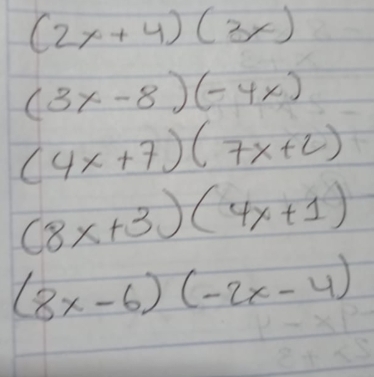 (2x+4)(3x)
(3x-8)(-4x)
(4x+7)(7x+2)
(8x+3)(4x+1)
(8x-6)(-2x-4)